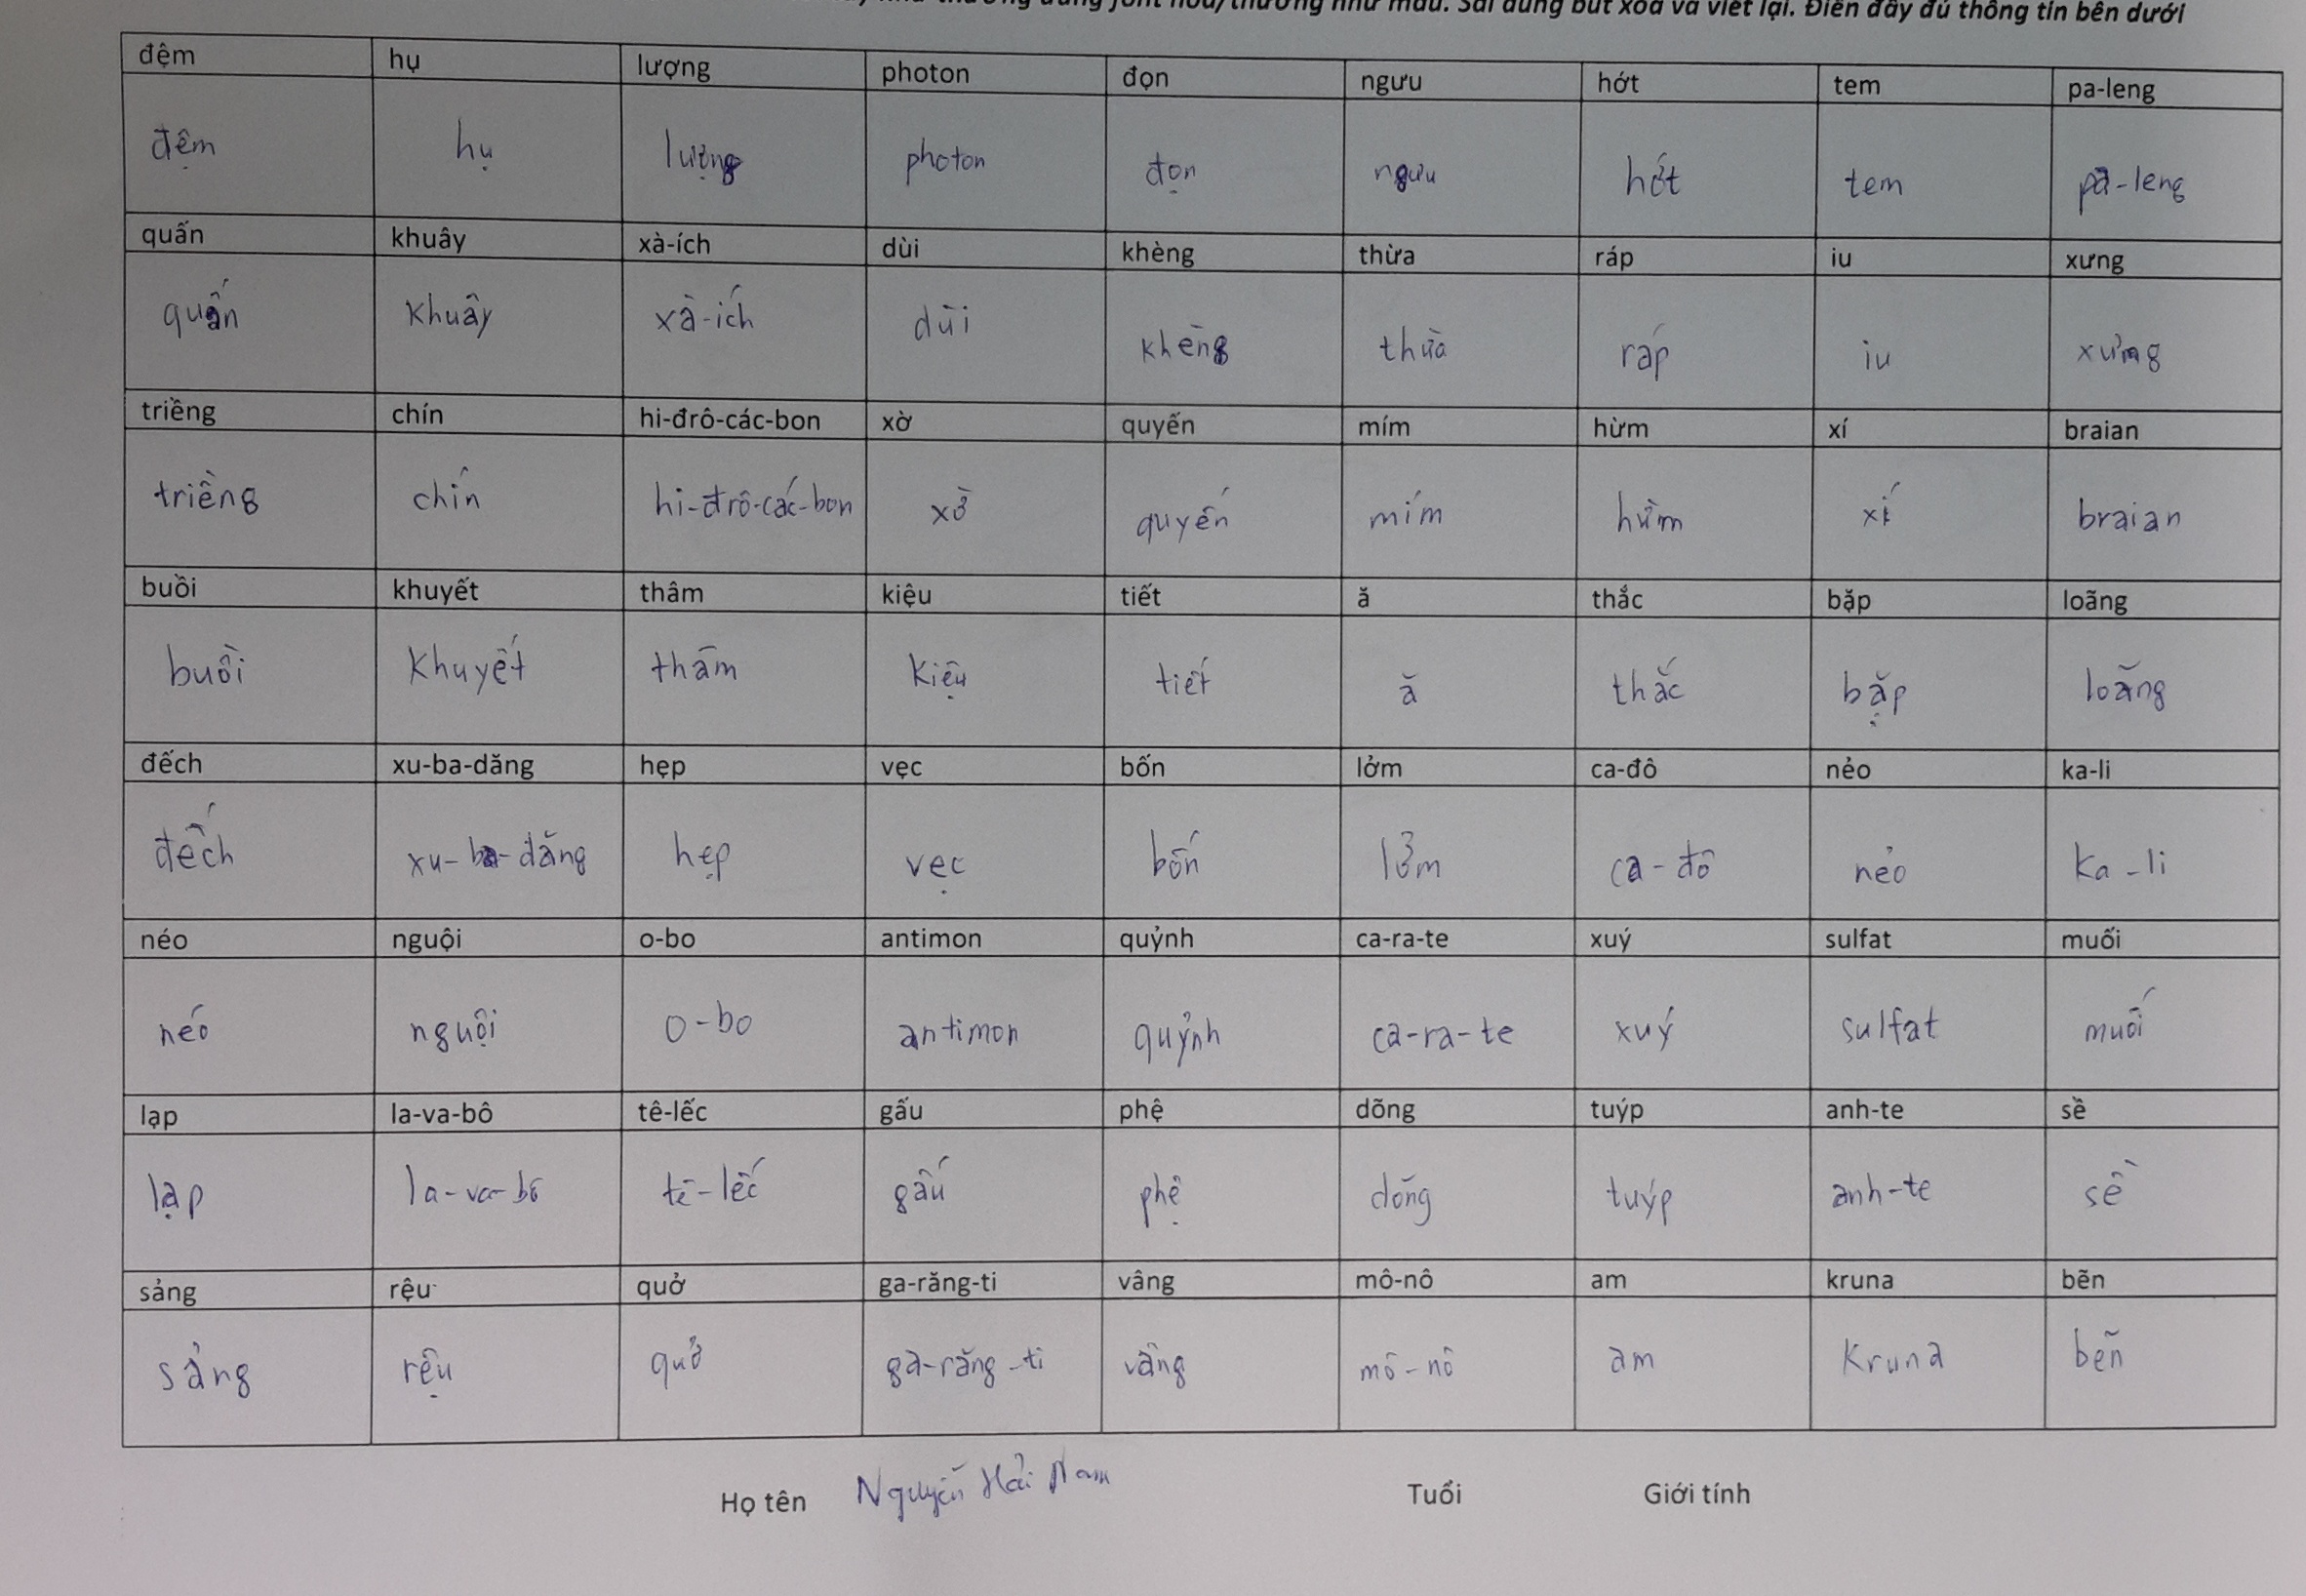 như thường dùng font hoa/thường như mẫu. Sai dùng bút xóa và viết lại. Điền đầy đủ thông tin bên dưới
đệm hụ lượng photon đọn ngưu hớt tem pa-leng
đệm hụ lượng photon đọn ngưu hớt tem pa-leng
quấn khuây xà-ích dùi khèng thừa ráp iu xưng
quấn khuây xà-ích dùi khèng thừa ráp iu xưng
triềng chín hi-đrô-các-bon xờ quyến mím hừm xí braian
triềng chín hi-đrô-các-bon xờ quyến mím hừm xí braian
buồi khuyết thâm kiệu tiết ă thắc bặp loãng
buồi khuyết thâm kiệu tiết ă thắc bặp loãng
đếch xu-ba-dăng hẹp vẹc bốn lởm ca-đô nẻo ka-li
đếch xu-ba-đăng hẹp vẹc bốn lởm ca-đô nẻo ka-li
néo nguội o-bo antimon quỳnh ca-ra-te xuý sulfat muối
néo nguội o-bo antimon quỷnh ca-ra-te xuý sulfat muối
lạp la-va-bô tê-lếc gấu phệ dõng tuýp anh-te sề
lạp la-va-bô tê-lếc gấu phệ dõng tuýp anh-te sề
sảng rệu quở ga-răng-ti vâng mô-nô am kruna bẽn
sảng rệu quở ga-răng-ti vâng mô-nô am kruna bẽn
Họ tên Nguyễn Hải Nam Tuổi Giới tính